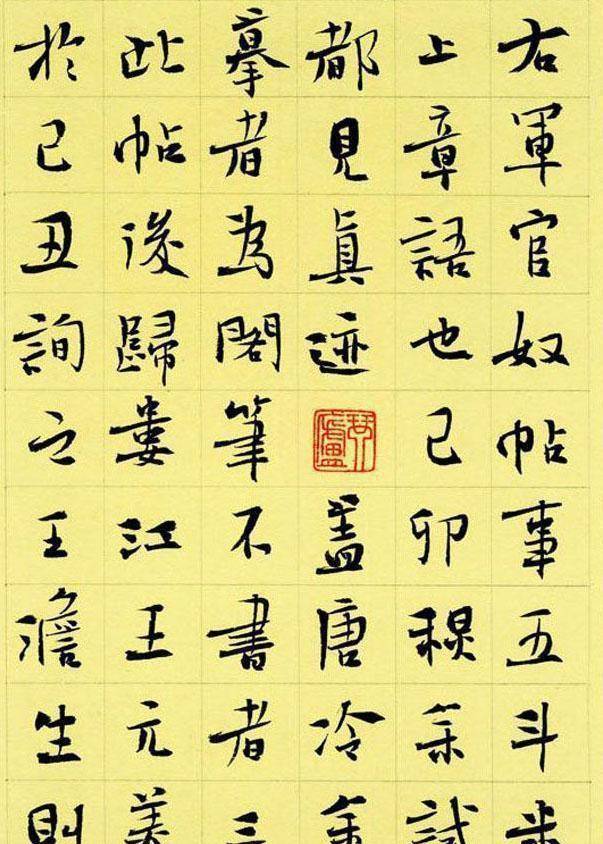 右軍官奴帖事五斗米
上章語也己卯穐余試
都見眞迹盖唐冷金
摹者為閣筆不書者三
此帖後歸婁江王元美
於己丑詢之王澹生則